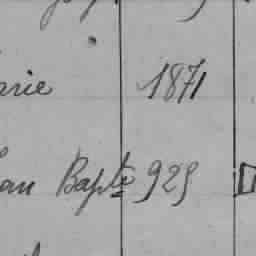 arie 1871
Jean Bapte 925